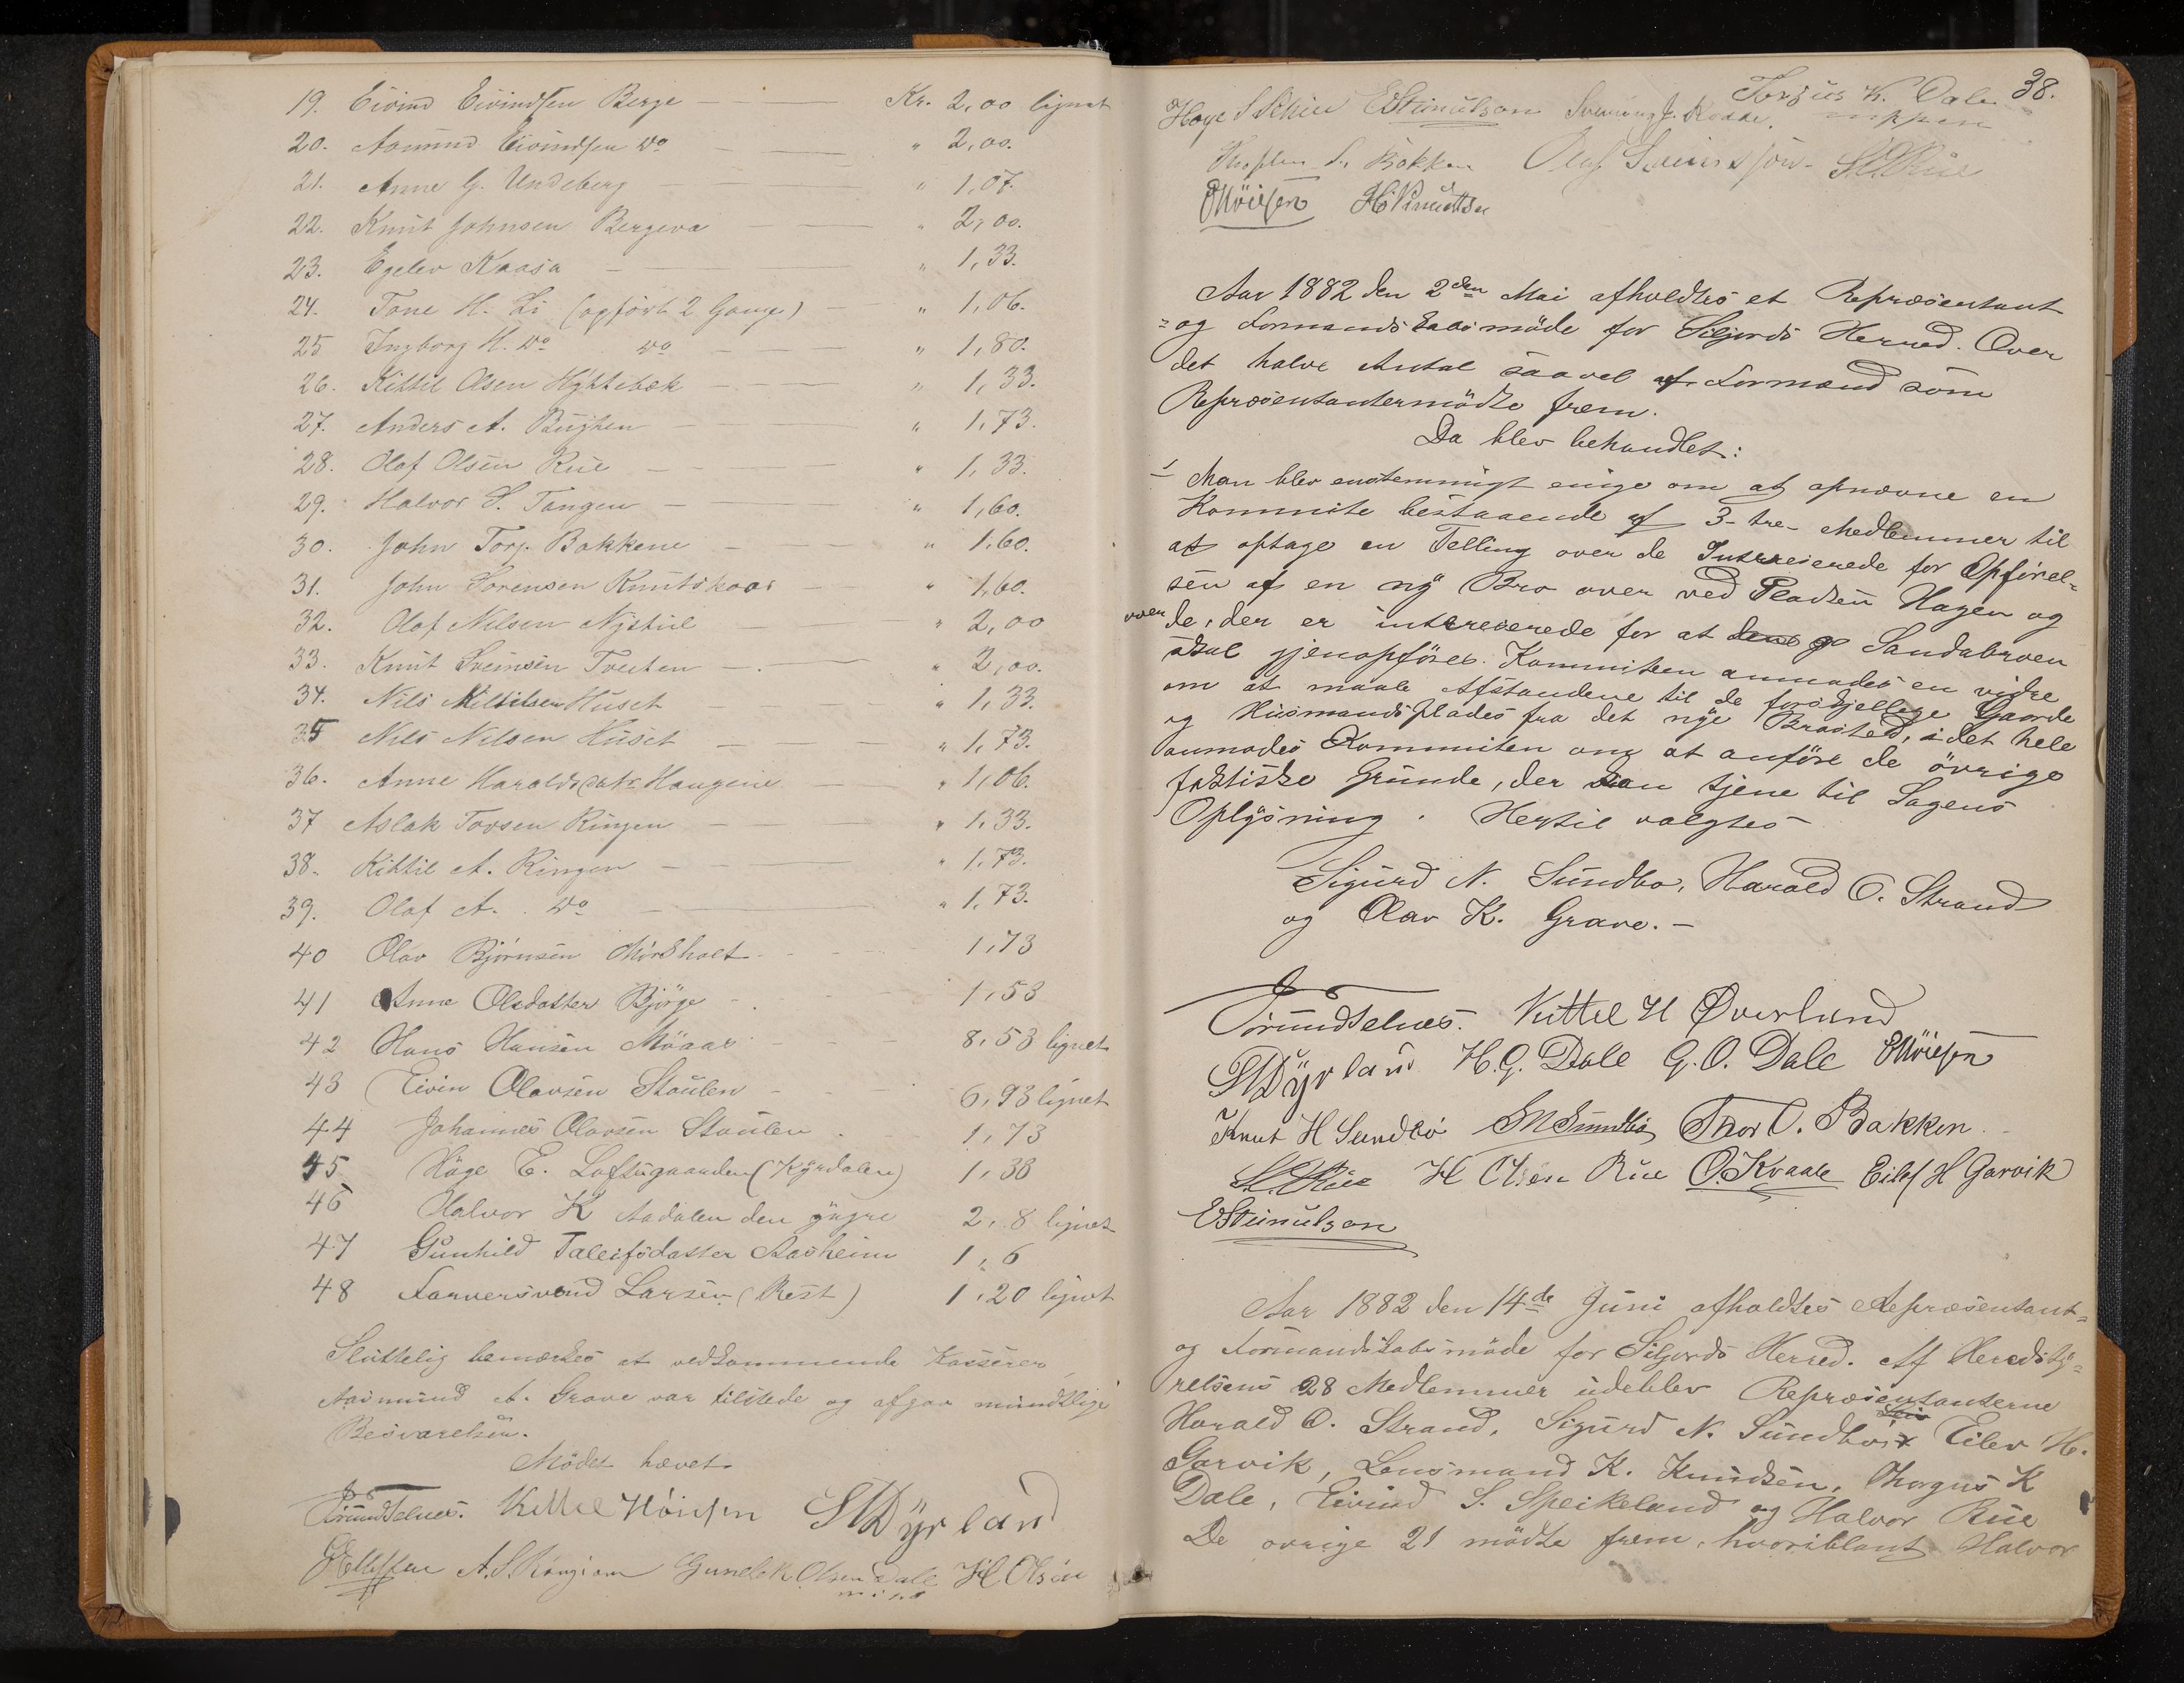 19. Eivind Eivindsen Berge — Kr. 2,00 lignet
20. Aamund Eivindsen do — " 2,00.
21. Anne G. Undeberg — " 1,07.
22. Knut Johnsen Bergeva — " 2,00.
23. Egelev Kaasa — " 1,33.
24. Tone H. Li (opført 2 Gange) — " 1,06.
25 Ingborg H. do do — " 1,80.
26. Kittil Olsen — " 1,33.
27. Anders A. — " 1,73.
28. Olaf Olsen Rue — " 1,33.
29. Halvor S. Tangen — " 1,60.
30. John Torj. Bakkene — " 1,60.
31. John Sorensen Knutskaas — " 1,60.
32. Olaf Nilsen Nystul — " 2,00
33. Knut Sveinsen Tveiten — " 2,00.
34. Nils Kittilsen Huset — " 1,33.
35 Nils Nilsen Huset — " 1,73.
36. Anne Haraldsdatr Haugene — " 1,06.
37 Aslak Tovsen Ringen — " 1,33.
38. Kittil A. Ringen — " 1,73.
39. Olaf A. do — " 1,73.
40 Olav Bjørnsen Mörkholt - - 1,73
41 Anne Olsdatter Bjørge - 1,53
42 Hans Hansen Möaar - - - 8,53 lignet
43 Eivin Olavsen Staulen - - 6,93 lignet
44 Johannes Olavsen Staulen . - 1,73
45 Häge E. Loftsgaarden (Kyrdalen) 1,38
46 Halvor K Aadalen den yngre 2,8 lignet
47 Gunhild Taleifsdatter Aasheim 1,6
48 Farversvend Larsen (Rest) 1,20 lignet
Sluttelig bemærkes at vedkommende Kasserer
Aasmund A. Grave var tilstede og afgav mundtlige
Besvarelsen.
Mødet hævet.
Trundselnes. Kittel Høiesen SHDyrland
A. S. Gunelek Olsen Dale H Olsen
38.
Torjus K. Dale
Haye S EStenulson
S. Bakken Olaf SHRue
OKöiesen HKnudtsen
Aar 1882 den 2den Mai afholdtes et Repræsentant
= og Formandskabsmöde for Siljords Herred. Over
det halve Antal saavel af Formænd som
Repræsentantermödte frem.
Da blev behandlet:
1 Man blev enstemmigt enige om at opnævne en
Kommite bestaaende af 3- tre- Medlemmer til
at optage en Telling over de Intereserede for Opførel=
sen af en ny Bro over ved Pladsen Hagen og
over de, der er intereserede for at Sandabroen
skal gjenopföres. Kommiteen anmodes en vidre
om at maale Afstandene til de forskjellige Gaarde
og Husmandsplades fra det nye Brosted, i det hele
anmodes Kommiten om at anföre de övrige
faktiske Grunde, der kan tjene til Sagens
Oplysning. Hertil valgtes
Sigurd N. Sundbø, Harald O. Strand
og Olav K. Grave. -
Trundselnes. Kittel H Øverland
SHDyrland H. G. Dale G. O. Dale OKöiesen
Knut H Sundbö SNSundbö Thor O. Bakken
SHRue H Olsen Rue O. Kvaale Eilef H Garvik
EStenulson
Aar 1882 den 14de Juni afholdtes Repræsentant=
og Formandskabsmöde for Siljords Herred. Af Heredsty=
relsens 28 Medlemmer udeblev Repræsentanterne
Harald O. Strand, Sigurd N. Sundbö, Eilev H.
Garvik, Lensmand K. Knudsen, Thorgus K
Dale, Eivind S. Speikeland og Halvor Rue
De ovrige 21 mödte frem, hvoriblant Halvor